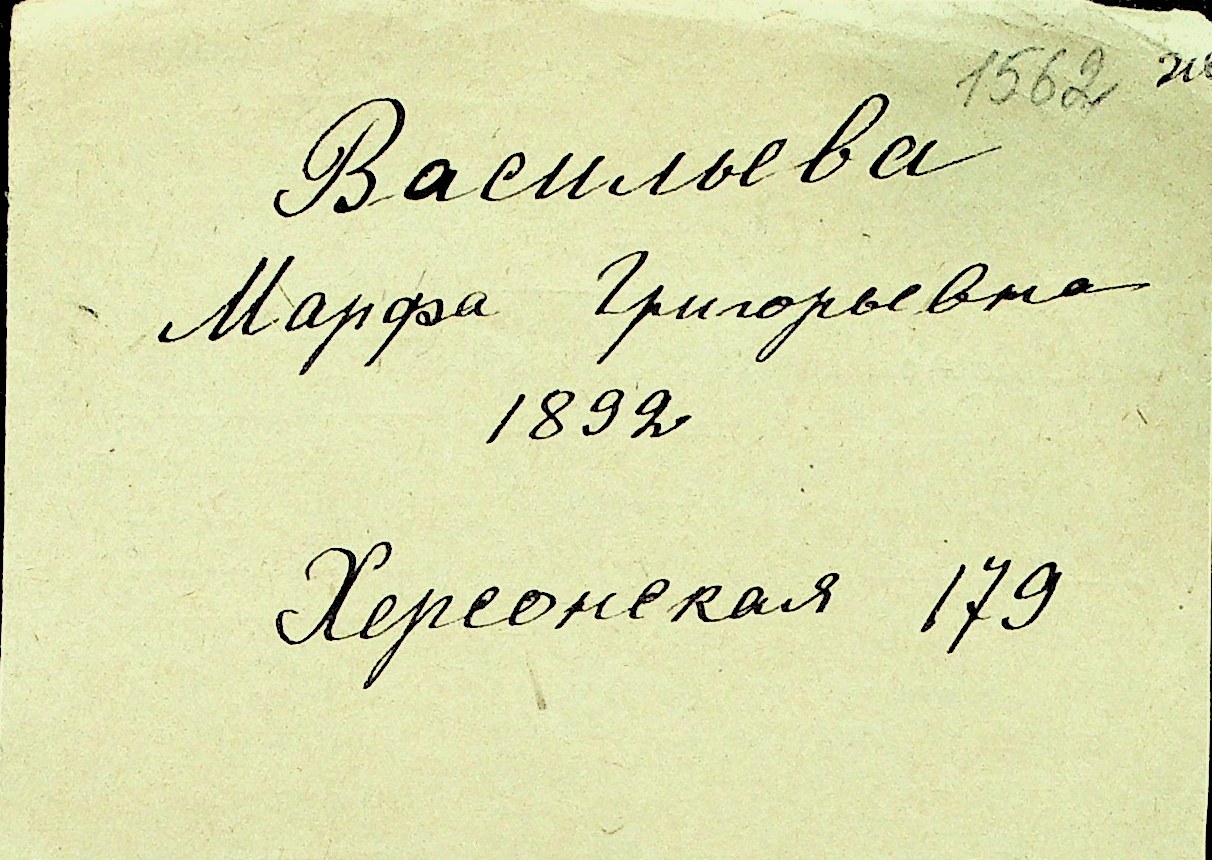 1562
Васильева
Марфа Григорьевна
1892
Херсонская 179